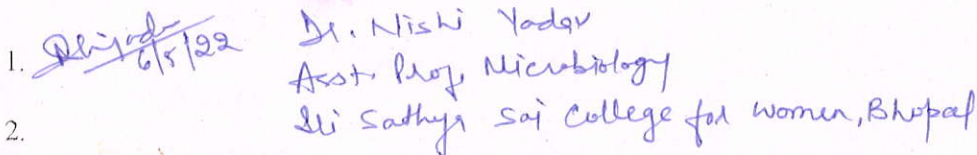 1. 6/5/22 Dr. Nishi Yadav
Asst. Prof. Microbiology
2. Sri Sathya Sai College for women, Bhopal